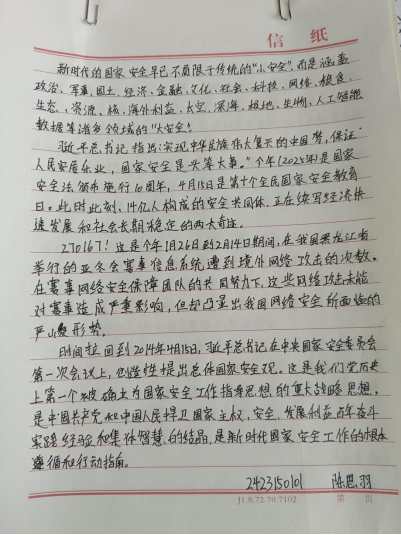 信 纸
新时代的国家安全早已不局限于传统的“小安全”，而是涵盖
政治、军事、国土、经济、金融、文化、社会、科技、网络、粮食、
生态、资源、核、海外利益、太空、深海、极地、生物、人工智能
数据等诸多领域的“大安全”。
习近平总书记指出：“实现中华民族伟大复兴的中国梦，保证
人民安居乐业，国家安全是头等大事。”今年（2025年）是国家
安全法颁布施行10周年，4月15日是第十个全民国家安全教育
日。此时此刻，14亿人构成的安全共同体，正在续写经济快
速发展和社会长期稳定的两大奇迹。
270167！这是今年1月26日到2月14日期间，在我国黑龙江省
举行的亚冬会赛事信息系统遭到境外网络攻击的次数。
在赛事网络安全保障团队的共同努力下，这些网络攻击未能
对赛事造成严重影响，但却凸显出我国网络安全所面临的
严峻形势。
时间拉回到2014年4月15日，习近平总书记在中央国家安全委员会
第一次会议上，创造性提出总体国家安全观，这是我们党历史
上第一个被确立为国家安全工作指导思想的重大战略思想，
是中国共产党和中国人民捍卫国家主权、安全、发展利益百年奋斗
实践经验和集体智慧的结晶，是新时代国家安全工作的根本
遵循和行动指南。
2423150101 陈思羽
J1.8.72.70.7102 第 页